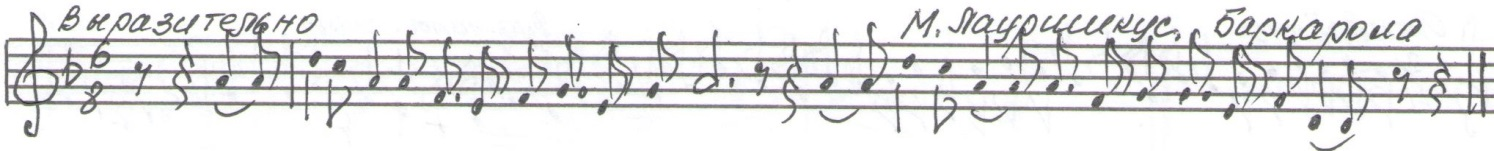 Выразительно М. Лауришкус. Баркарола
6
8